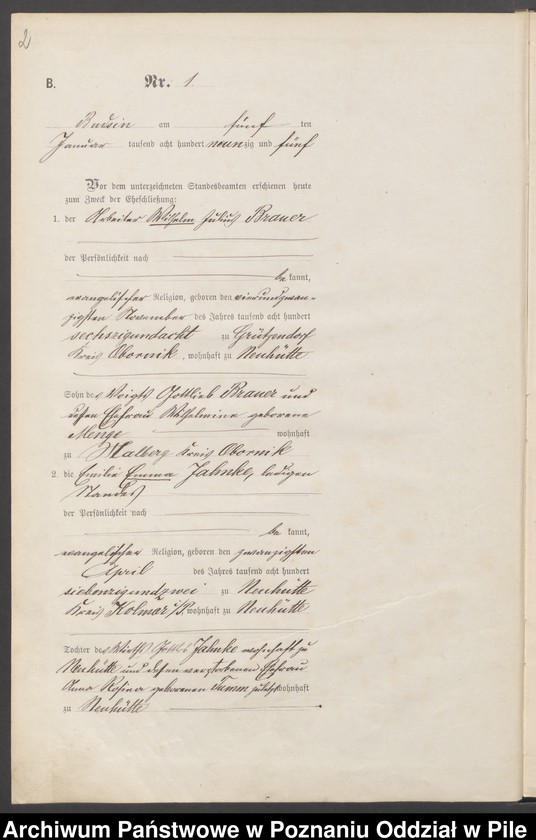 2
B. Nr. 1
Budsin am fünf ten
Januar tausend acht hundert neunzig und fünf
Vor dem unterzeichneten Standesbeamten erschienen heute
zum Zweck der Eheschließung:
1. der Arbeiter Wilhelm Julius Brauer
der Persönlichkeit nach
be kannt,
evangelischer Religion, geboren den vierundzwan-
zigsten November des Jahres tausend acht hundert
sechszigundacht zu Grützendorf
Kreis Obornik, wohnhaft zu Neuhütte
Sohn des Voigts Gottlieb Brauer und
dessen Ehefrau Wilhelmine geborene
Menge wohnhaft
zu Kreis Obornik
2. die Emilie Emma Jahnke, ledigen
Standes
der Persönlichkeit nach
be kannt,
evangelischer Religion, geboren den zwanzigsten
April des Jahres tausend acht hundert
siebenzigundzwei zu Neuhütte
Kreis Kolmar i/P. wohnhaft zu Neuhütte
Tochter des Wirths Gottlieb Jahnke wohnhaft zu
Neuhütte und dessen verstorbenen Ehefrau
Anna Rosina geborenen Tamm zuletzt wohnhaft
zu Neuhütte
Archiwum Państwowe w Poznaniu Oddział w Pile